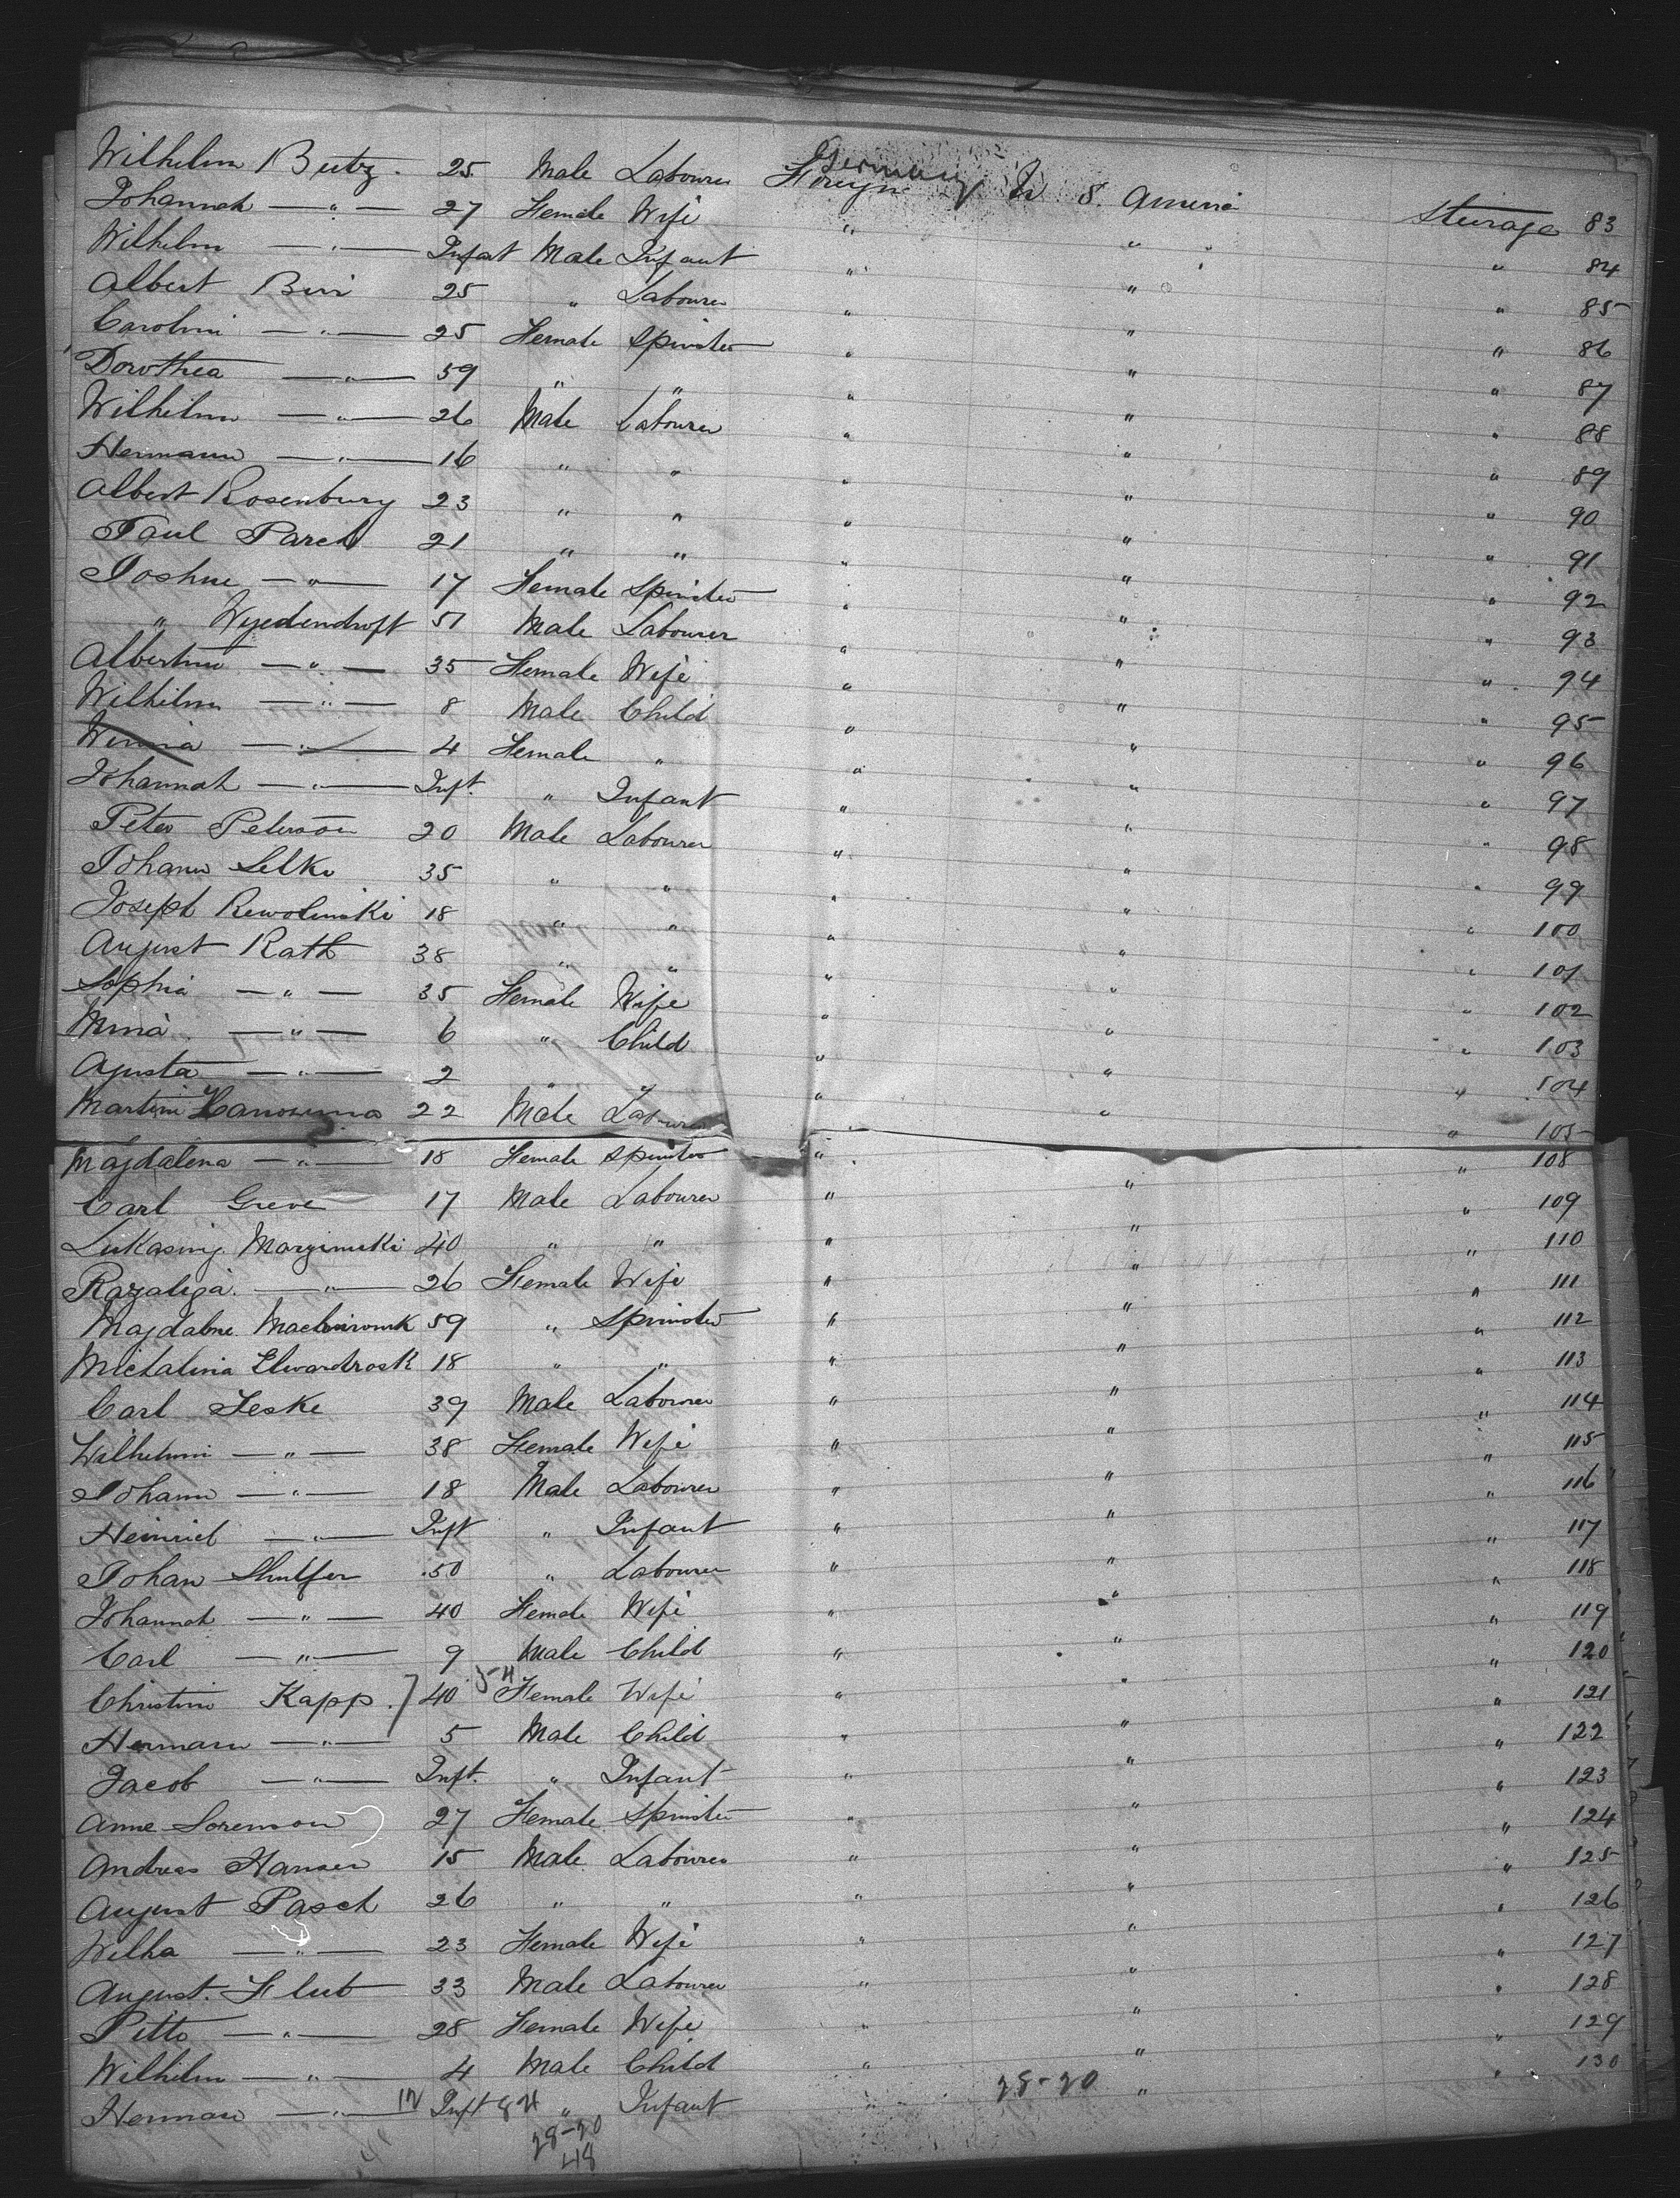 Wilhelm Butz. 25 Male Labourer Foreign Germany U S. America Steerage 83
Johannah — " — 27 Female Wife " " " 84
Wilhelm — " — Infat Male Infant " " " 85
Albert Birr 25 " Labourer " " " 86
Carolini — " — 25 Female Spinster " " " 87
Dorothea — " — 59 " " " " " 88
Wilhelm — " — 26 Male Labourer " " " 89
Hermann — " — 16 " " " " " 90
Albert Rosenbury 23 " " " " " 91
Paul Parch 21 " " " " " 92
Joshue — " — 17 Female Spinster " " " 93
" Wyedendroft 51 Male Labourer " " " 94
Albertine — " — 35 Female Wife " " " 95
Wilhelm — " — 8 Male Child " " " 96
Winnia — " — 4 Female " " " " 97
Johannah — " — Inft. " Infant " " " 98
Peter Peterson 20 Male Labourer " " " 99
Johann Selke 35 " " " " " 100
Joseph Rewolinski 18 " " " " " 101
August Rath 38 " " " " " 102
Sophia — " — 35 Female Wife " " " 103
Minna — " — 6 " Child " " " 104
Agusta — " — 2 " " " " " 105
Martin 22 Male Labourer "
Majdalena — " — 18 Female Spinster " " " 108
Carl Greve 17 Male Labourer " " " 109
Lukasing Marzinuki 40 " " " " " 110
Razaliga. — " — 26 Female Wife " " " 111
Majdalne 59 " Spinster " " " 112
Michalina Elwardrosk 18 " " " " " 113
Carl Jeske 39 Male Labourer " " " 114
Wilhelmni — " — 38 Female Wife " " " 115
Johann — " — 18 Male Labourer " " " 116
Heinrich — " — Inft " Infant " " " 117
Johan Shulfer 50 " Labourer " " " 118
Johannah — " — 40 Female Wife " " " 119
Carl — " — 9 Male Child " " " 120
Christini Kapp. 40 Female Wife " " " 121
Hermann — " — 5 Male Child " " " 122
Jacob — " — Inft. " Infant " " " 123
Anne Sorenson 27 Female Spinster " " " 124
Andreas Hansen 15 Male Labourer " " " 125
August Pasch 26 " " " " " 126
Wilha — " — 23 Female Wife " " " 127
August. Flut 33 Male Labourer " " " 128
Pitto — " — 28 Female Wife " " " 129
Wilhelm — " — 4 Male Child " " " 130
Herman — " — 12 Inft " Infant " 28-20 "
28-20
48